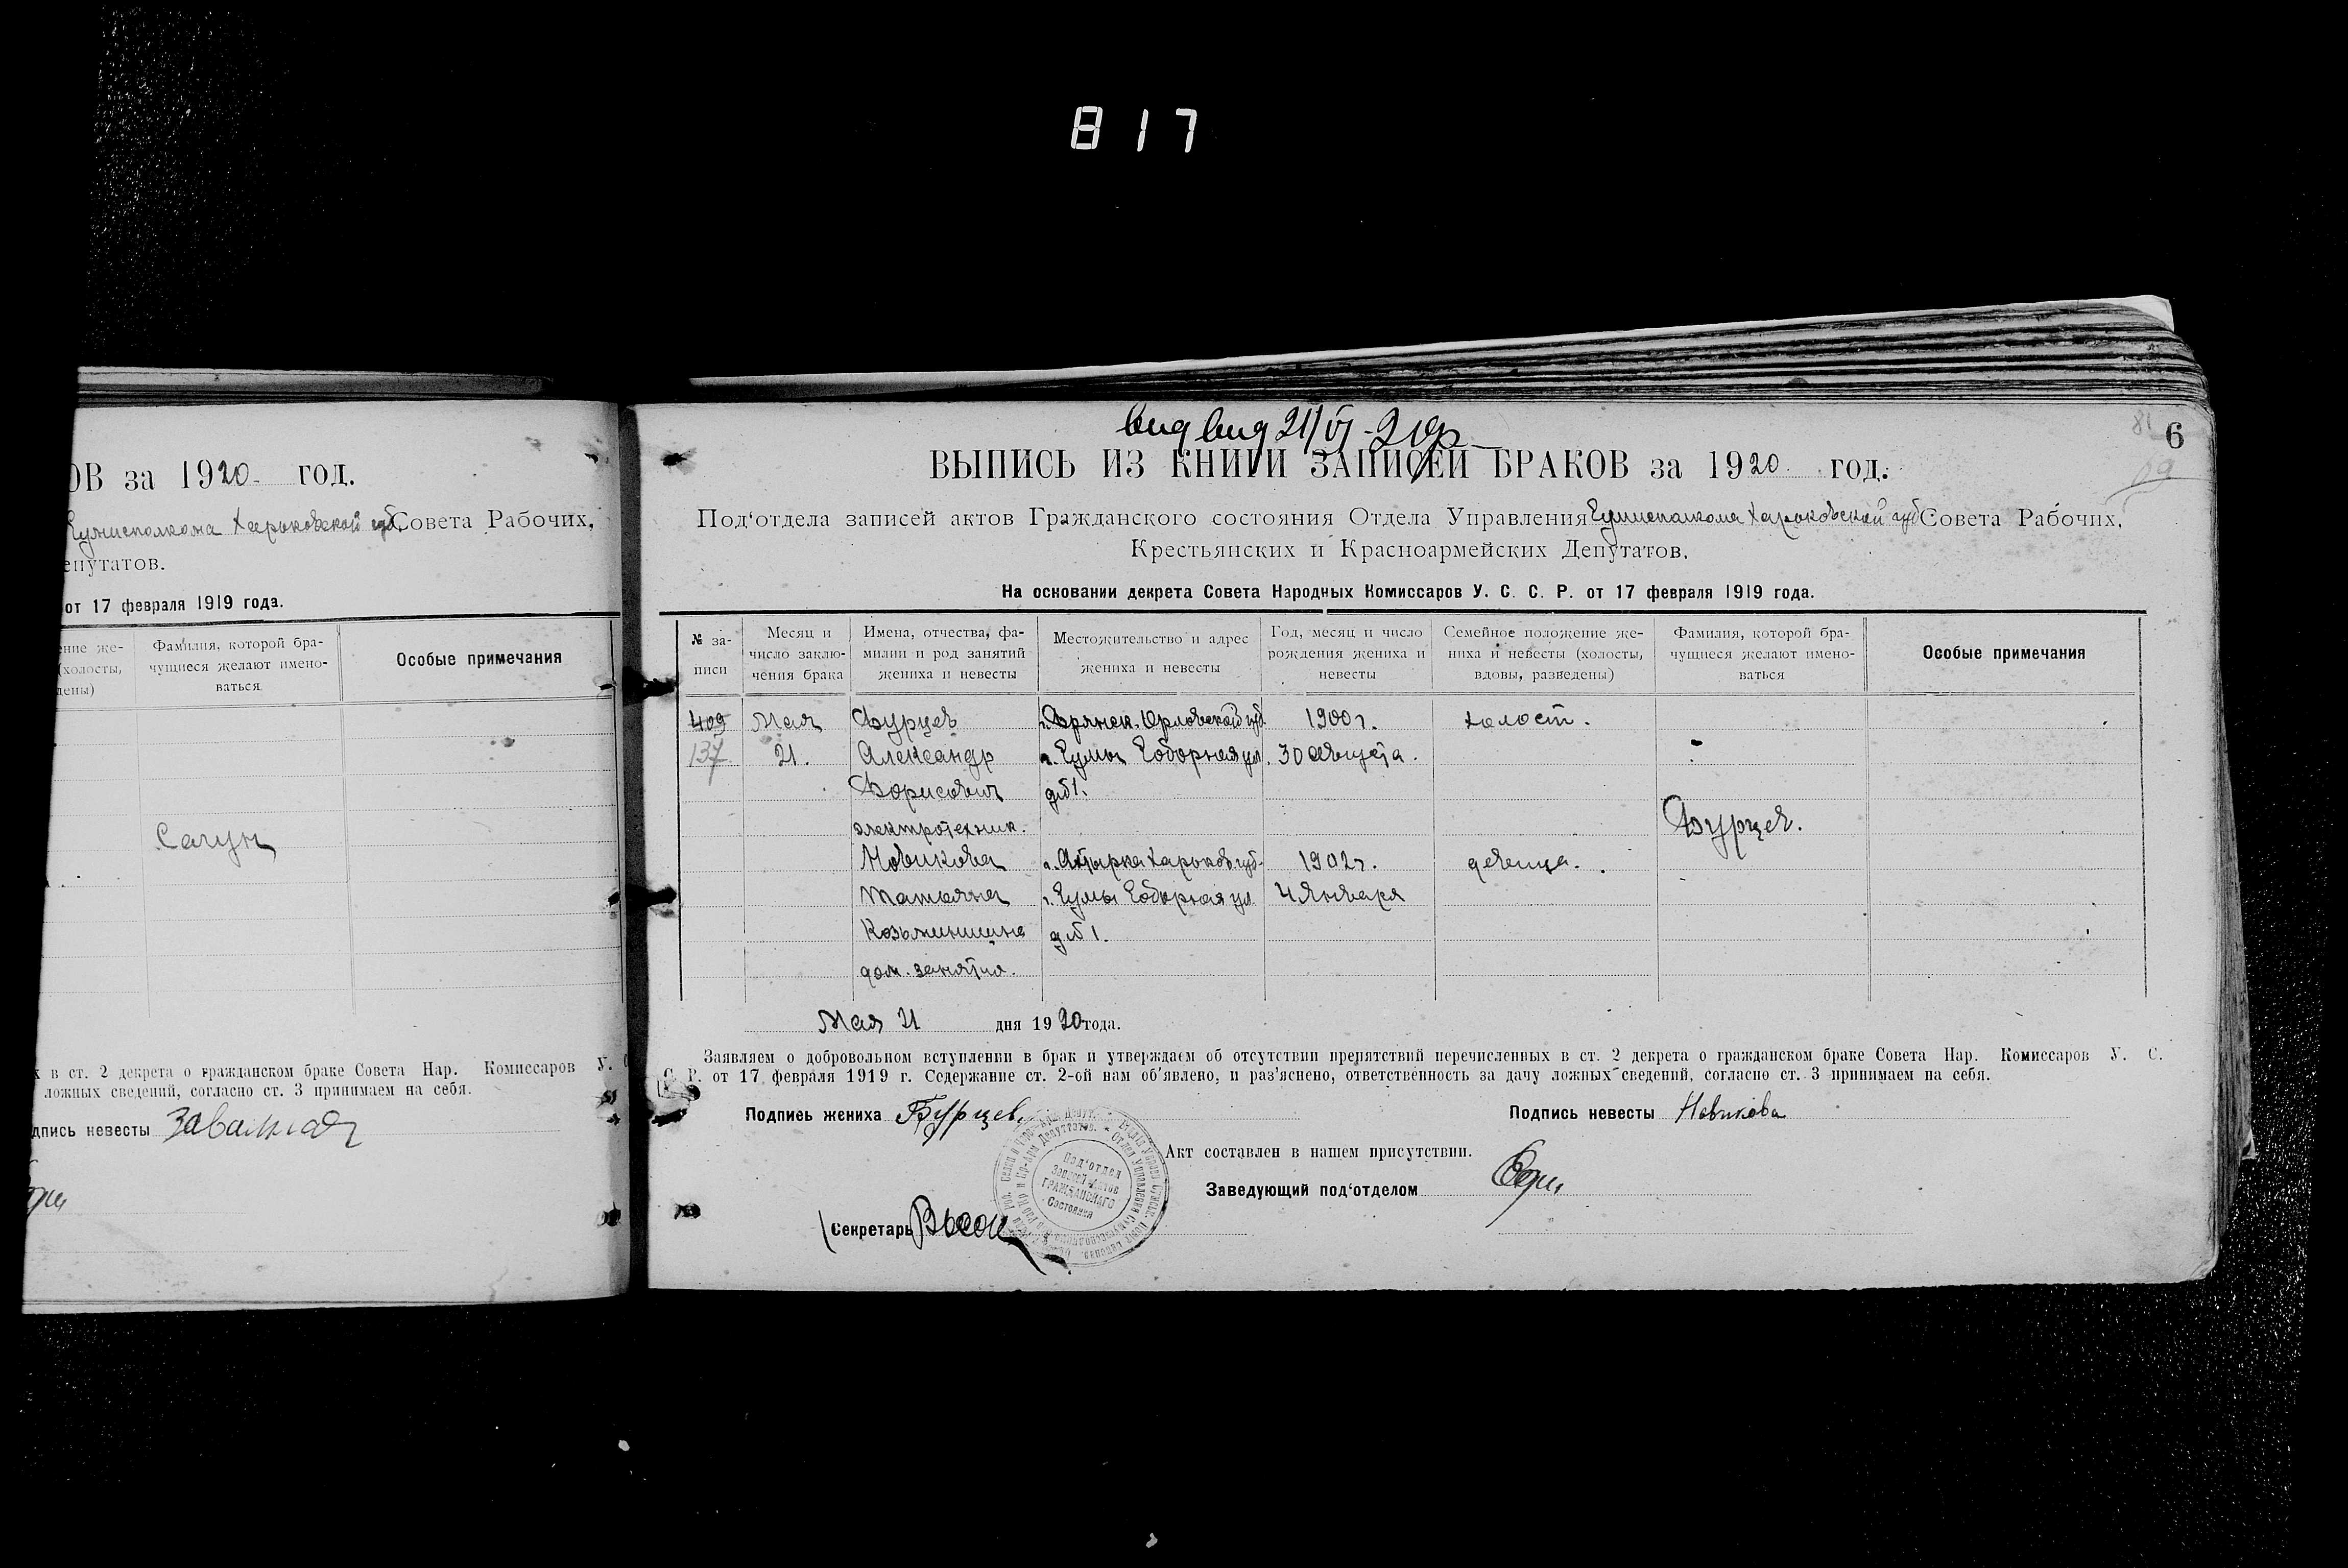 817
ОВ за 1920 год.
Сумисполкома Харьковской губ. Совета Рабочих,
епутатов.
от 17 февраля 1919 года.
ение же-
(холосты,
дены)
Фамилия, которой бра-
чущиеся желают имено-
ваться
Особые примечания
Сагун
х в ст. 2 декрета о гражданском браке Совета Нар. Комиссаров У. С
ложных сведений, согласно ст. 3 принимаем на себя.
дпись невесты
81
6
ВЫПИСЬ ИЗ КНИГИ ЗАПИСЕЙ БРАКОВ за 1920 год.
Под'отдела записей актов Гражданского состояния Отдела Управления Сумисполкома Харьковской губ Совета Рабочих,
Крестьянских и Красноармейских Депутатов.
На основании декрета Совета Народных Комиссаров У. С. С. Р. от 17 февраля 1919 года.
№ за-
писи
Месяц и
число заклю-
чения брака
Имена, отчества, фа-
милии и род занятий
жениха и невесты
Местожительство и адрес
жениха и невесты
Год, месяц и число
рождения жениха и
невесты
Семейное положение же-
ниха и невесты (холосты,
вдовы, разведены)
Фамилия, которой бра-
чущиеся желают имено-
ваться
Особые примечания
409 Мая Бурцев г. Брянск. Орловской губ. 1900 г. холост.
137 21. Александр г. Сумы Соборная ул. 30 августа.
Борисович д.№1.
электротехник. Бурцев.
Новикова г. Ахтырка Харьков. губ. 1902 г. девица.
Татьяна г. Сумы Соборная ул 4 Января
Козьминична д.№ 1.
дом. занятия.
Мая 21 дня 1920 года.
Заявляем о добровольном вступлении в брак и утверждаем об отсутствии препятствий перечисленных в ст. 2 декрета о гражданском браке Совета Нар. Комиссаров У. С.
С. Р. от 17 февраля 1919 г. Содержание ст. 2-ой нам об'явлено, и раз'яснено, ответственность за дачу ложных сведений, согласно ст. 3 принимаем на себя.
Подпись жениха Бурцев
Подпись невесты Новикова
Акт составлен в нашем присутствии.
Заведующий под'отделом
Секретарь
Под'отдел
Записей Актов
ГРАЖДАНСКАГО
Состояния